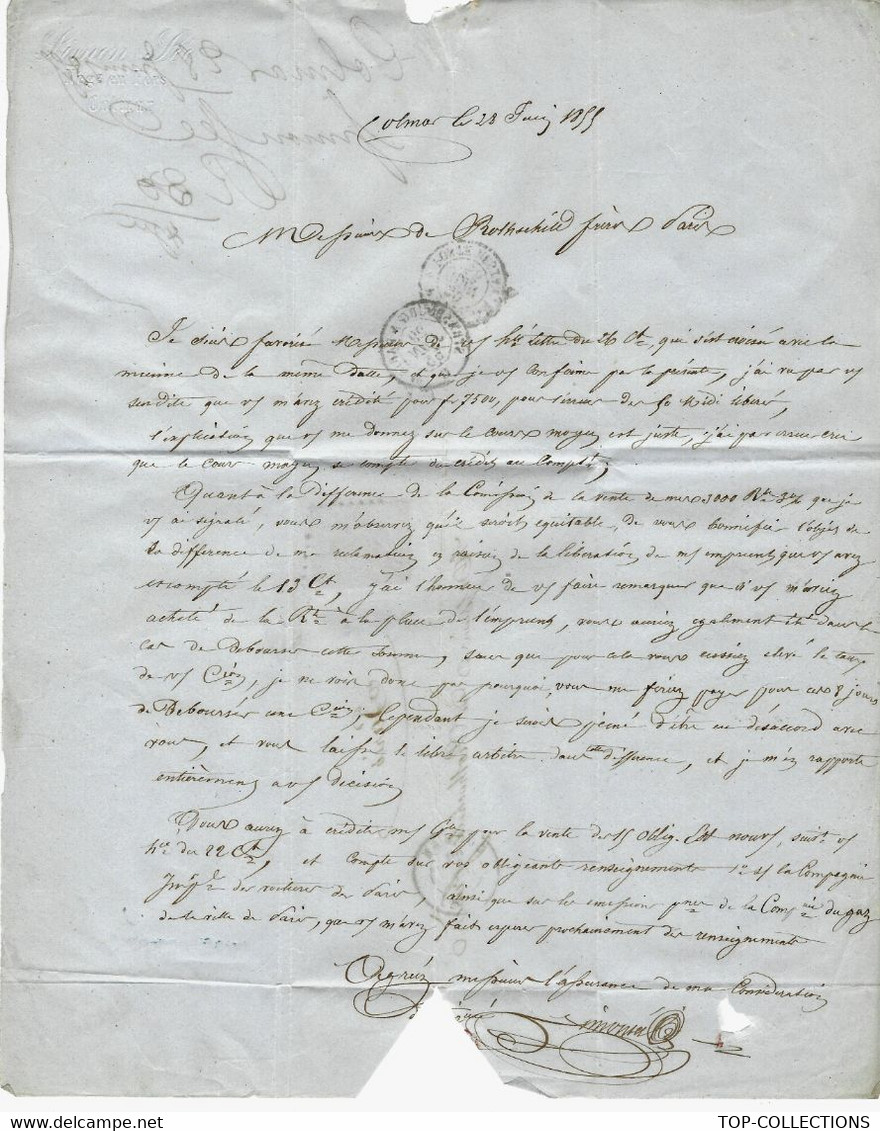 Colmar le 28 Juin 1855
Messieurs de Rothschild frères Paris
Je suis favorisé Messieurs de vs hre lettre du 26 Ct, qui s'est croisée avec la
mienne de la même datte, et que je vs confirme par la présente, j'ai vu par vs
susdite que vs m'avez crédité pour fr 7500, pour l'erreur des 50 Midi liberé,
l'explication que vs me donnez sur le cours moyen est juste, j'ai par erreur cru
que le cours moyen se compte du crédit au Comptt,
Quant à la différence de la Comission de la vente de mes 3000 Rte 3% que je
vs ai signalé, vous m'observez qu'il seroit équitable, de vous bonnifier l'objet de
la différence de ma réclamation en raison de la libération de mes emprunt que vs avez
escompté le 13 Ct, j'ai l'honneur de vs faire remarquer que si vs m'aviez
acheté de la Rte à la place de l'emprunt, vous auriez egalement été dans le
cas de Debourser cette somme, sans que pour cela vous eussiez elevé le taux
de vs Cion, je ne vois donc pas pourquoi, vous me feriez payer pour ces 8 jours
de Deboursés une Cion, Cependant je serois peiné d'être en désaccord avec
vous, et vous laisse le libre arbitre dans cette différence, et je m'en rapporte
entièrement a vs décision
Vous aurez à créditer mes Cte pour la vente de 15 Oblig. Est nouvs, suivt vs
hre du 22 Ct, et compte sur vos obligeants renseignements 1° s/ la Compagnie
Imple des voitures de Paris, ainsi que sur les emissions de la Compnie du gaz
de la ville de Paris, que vs m'avez fait esperer prochainement des renseignements
Agréez messieurs l'assurance de ma Considération
TOP-COLLECTIONS